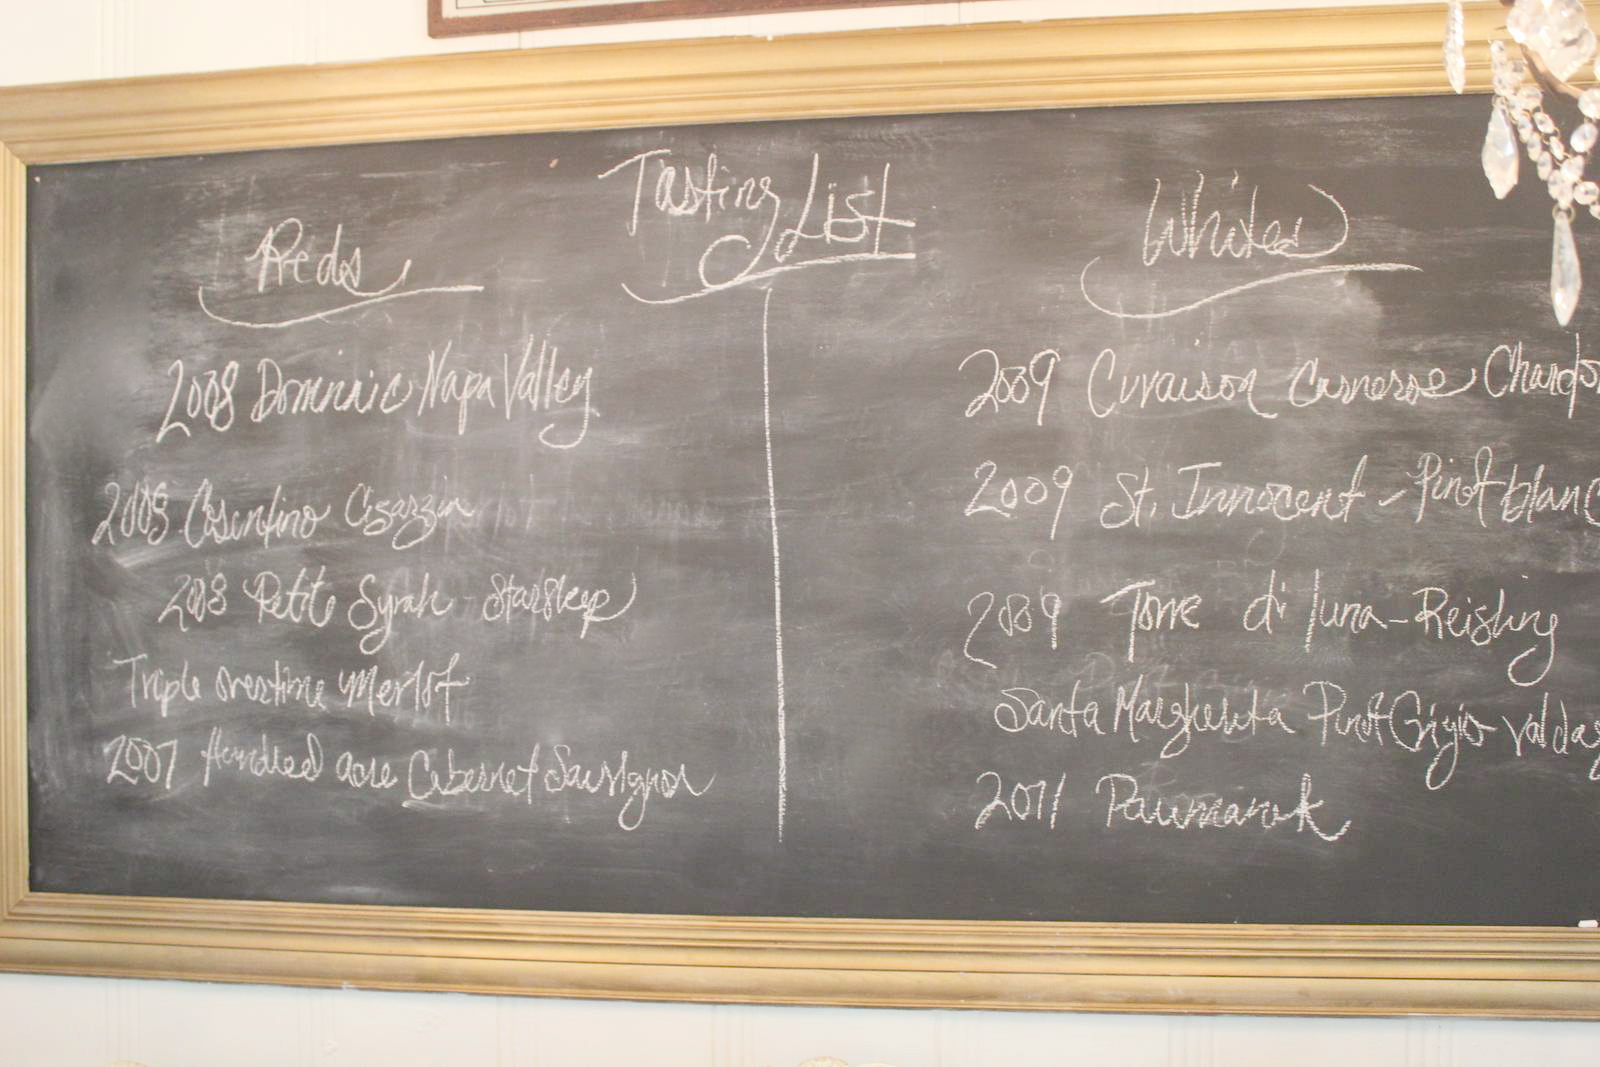 Tasting List
Reds
2008 Dominic Napa Valley
2008 Cosentino Cigarzin
2008 Petit Syrah - Starsleep
Triple overtime Merlot
2007 Hundred acre Cabernet Sauvignon
Whites
2009 Cuvaison Carneros Chardo
2009 St. Innocent - Pinot blanc
2009 Torre di luna - Reisling
Santa Margherita Pinot Grigio Valda
2011